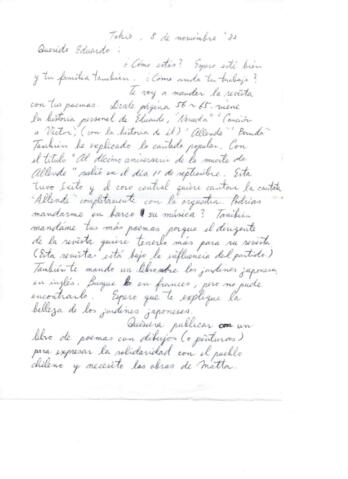 Tokio, 8 de noviembre '83
Querido Eduardo:
¿Cómo estás? Espero esté bien
y tu familia también. ¿Cómo anda tu trabajo?
Te voy a mandar la revista
con tus poemas. Desde página 56~65. viene
la historia personal de Eduardo, "Neruda" "Canción
a Víctor", (con la historia de él) "Allende"
También he explicado la cantada popular. Con
el título "Al décimo aniversario de la muerte de
Allende" salió en el día 11 de septiembre. Esta
tuvo éxito y el coro central quiere cantar la cantata
"Allende" completamente con la orquestra. Podrías
mandarme en barco su música? También
mandame tus más poemas porque el dirigente
de la revista quiere tenerlo más para su revista
(Esta revista está bajo la influencia del partido)
También te mando un libro sobre los jardines japoneses
en inglés. Busqué en francés, pero no pude
encontrarlo. Espero que te explique la
belleza de los jardines japoneses.
Quisiera publicar un
libro de poemas con dibujos (o pinturas)
para expresar la solidaridad con el pueblo
chileno y necesito las obras de Matta.